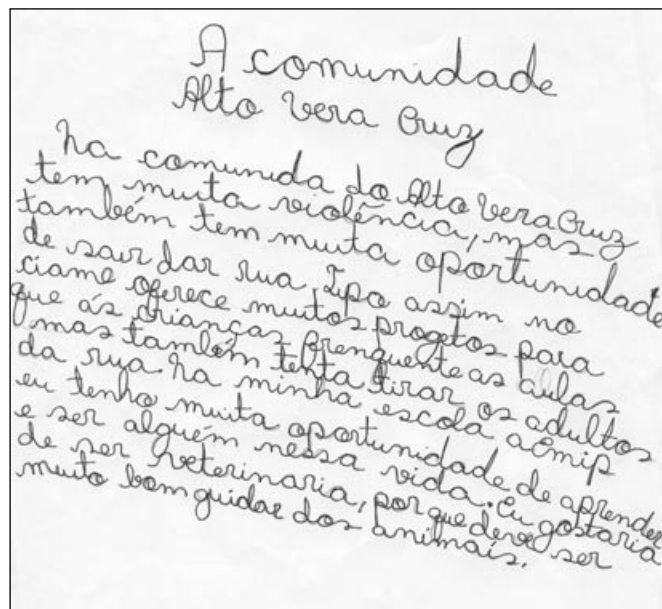 A comunidade
Alto Vera Cruz
Na comunida do Alto Vera Cruz
tem muita violência, mas
também tem muita oportunidade
de sair dar rua. Tipo assim no
ciame oferece muitos progetos para
que ás crianças frenquente as aulas
mas também tenta tirar os adultos
da rua. Na minha escola aEmip
eu tenho muita oportunidade de aprender
e ser alguém nessa vida. Eu gostaria
de ser veterinaria, por que deve ser
muito bom guidar dos animais.